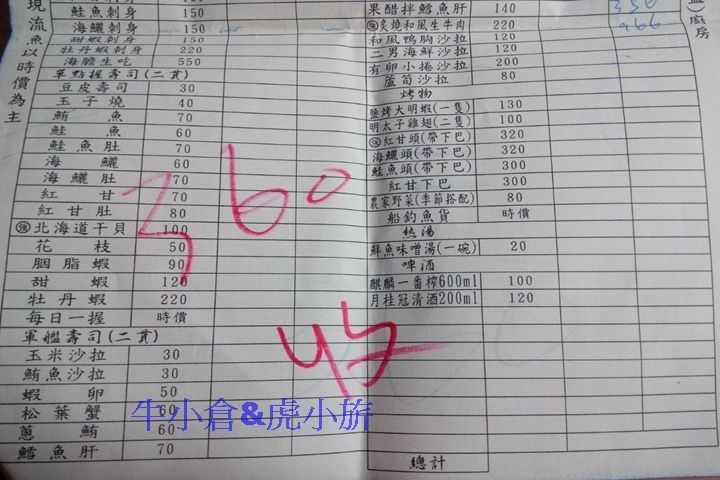 現流魚以時價為主
鮭魚刺身 150
海鱺刺身 150
甜蝦刺身 150
牡丹蝦刺身 220
海膽生吃 550
單點握壽司(二貫)
豆皮壽司 30
玉子燒 40
鮪魚 70
鮭魚 60
鮭魚肚 70
海鱺 60
海鱺肚 70
紅甘 70
紅甘肚 80
北海道干貝 100
花枝 50
胭脂蝦 90
甜蝦 120
牡丹蝦 220
每日一握 時價
軍艦壽司(二貫)
玉米沙拉 30
鮪魚沙拉 30
蝦卵 50
松葉蟹 60
蔥鮪 60
鱈魚肝 70
果醋拌鱈魚肝 140
炙燒和風生牛肉 220
和風鴨胸沙拉 120
二男海鮮沙拉 120
有卵小捲沙拉 200
蘆筍沙拉 80
烤物
鹽烤大明蝦(一隻) 130
明太子雞翅(二隻) 100
紅甘頭(帶下巴) 320
海鱺頭(帶下巴) 320
鮭魚頭(帶下巴) 300
紅甘下巴 300
農家野菜(季節搭配) 80
船釣魚貨 時價
热湯
鮮魚味噌湯(一碗) 20
啤酒
麒麟一番榨600ml 100
月桂冠清酒200ml 120
總計
廚房
360
45
966
牛小倉&虎小旂